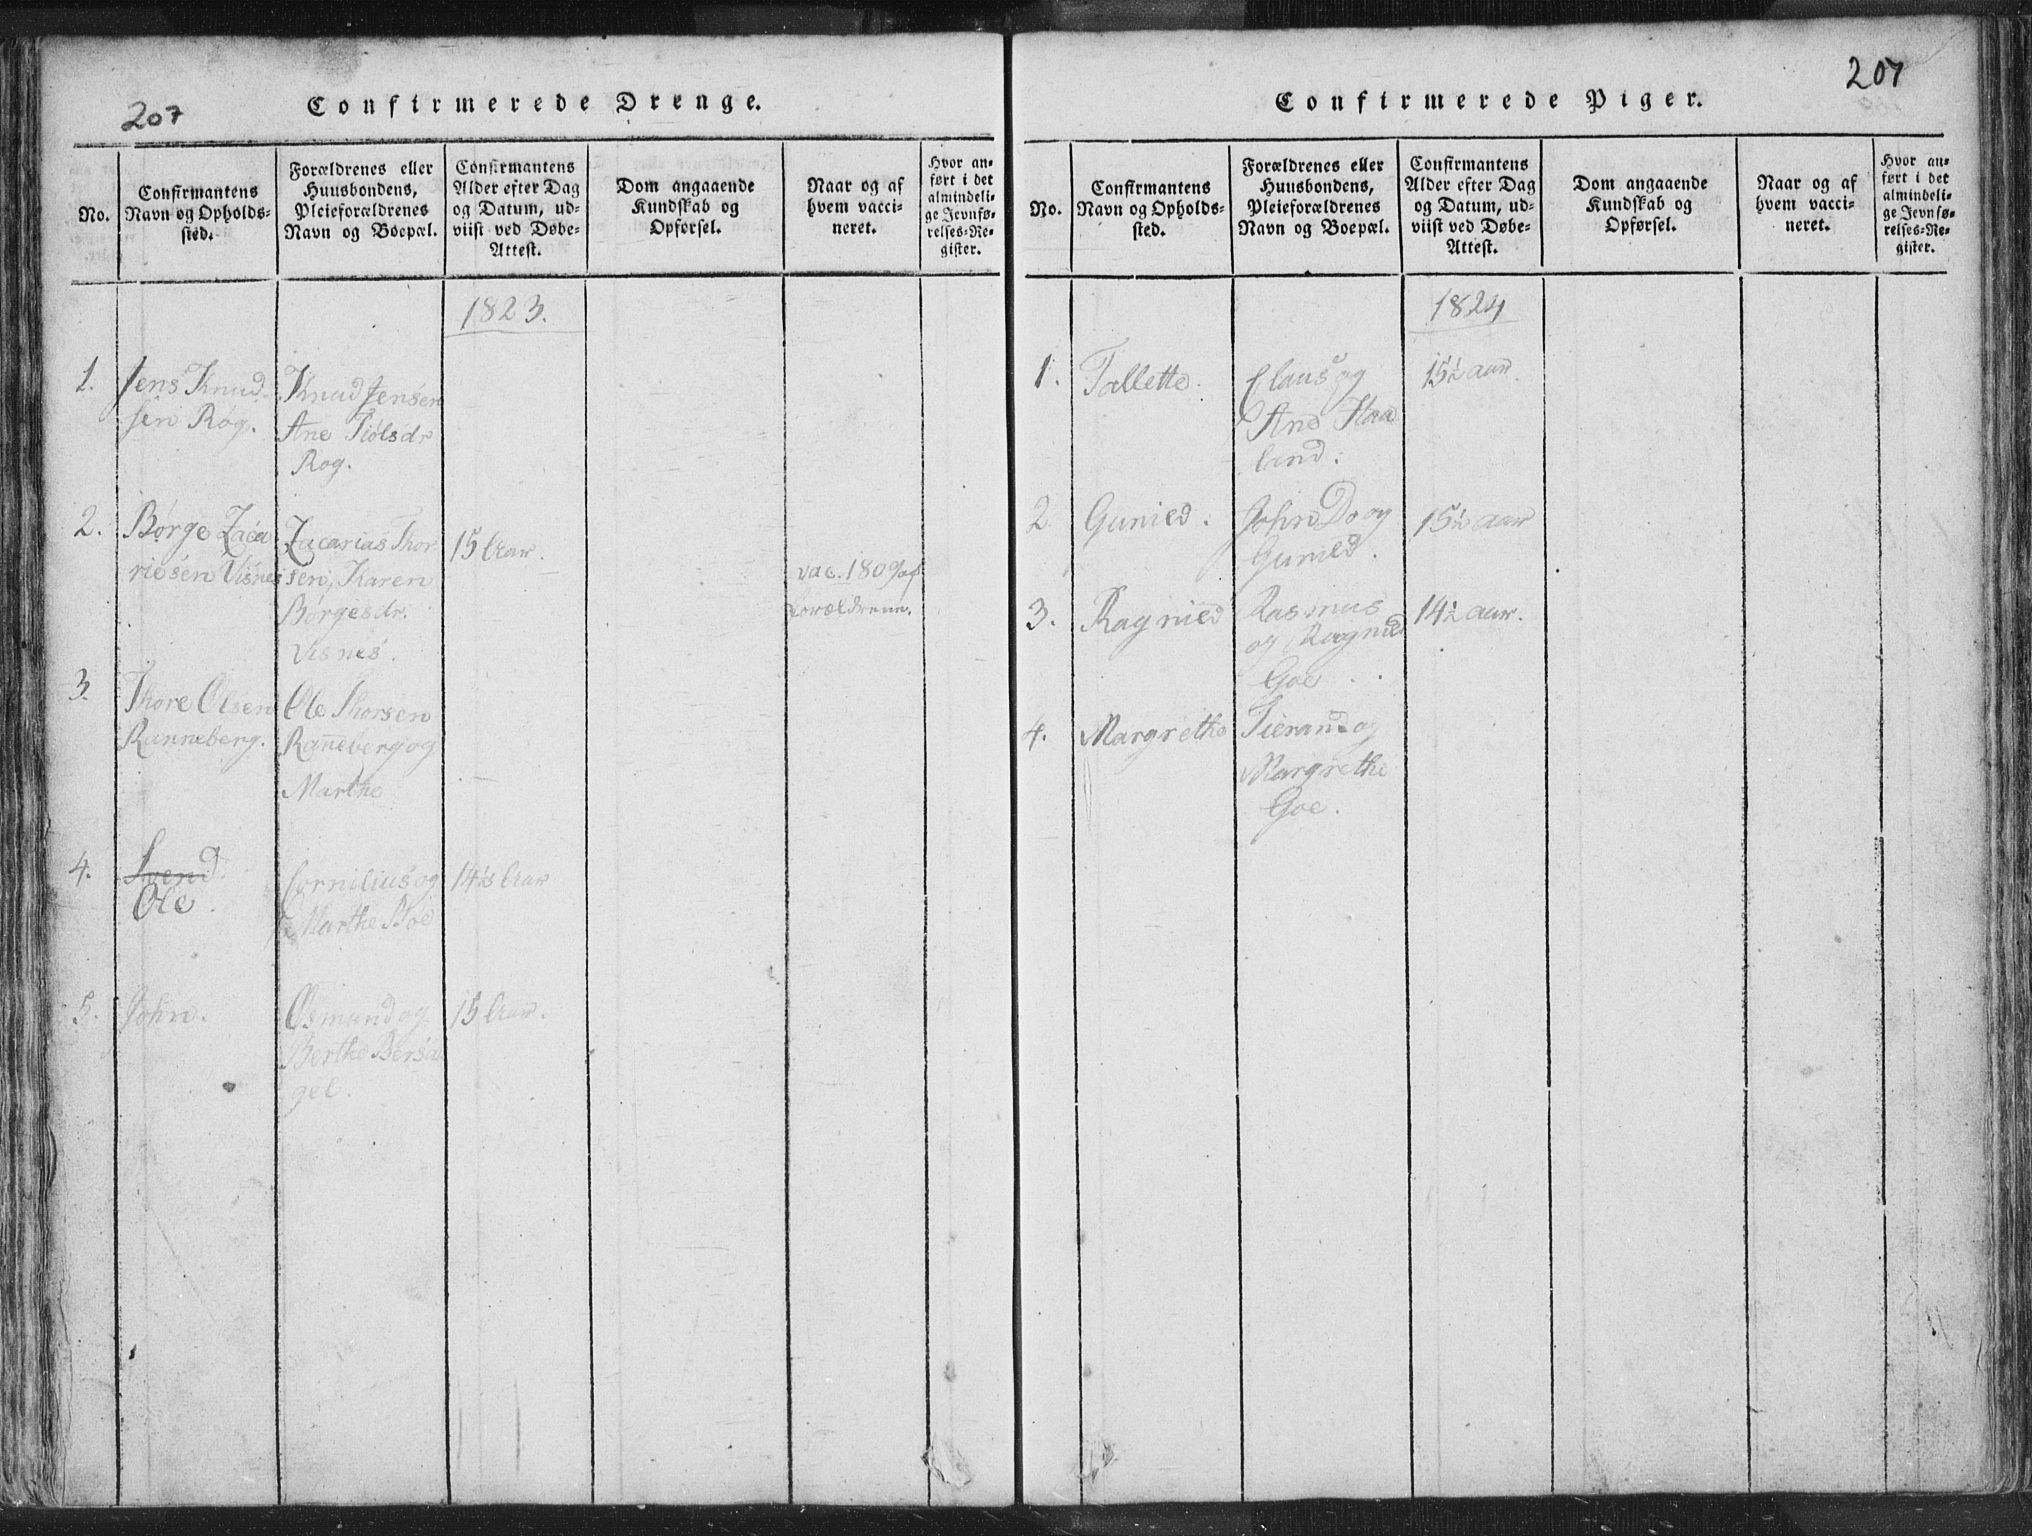 207
Confirmerede Drenge.
No.
Confirmantens
Navn og Opholds-
sted.
Forældrenes eller
Huusbondens,
Pleieforældrenes
Navn og Boepæl.
Confirmantens
Alder efter Dag
og Datum, ud-
viist ved Døbe-
Attest.
Dom angaaende
Kundskab og
Opførsel.
Naar og af
hvem vacci-
neret.
Hvor an-
ført i det
almindeli-
ge Jevnfø-
relses-Re-
gister.
1823.
1.
Jens Knud-
sen Røg.
Knud Jensen
Ane Tiølsdr
Røg.
2.
Børge Zaca
riesen Visnes
Zacarias Thor
sen, Karen
Børgesdr.
Visnes.
15 Aar.
vac. 1809 af
Forældrene.
3.
Thore Olsen
Ranneberg.
Ole Thorsen
Raneberg og
Marthe
4.
Svend
Ole.
Cornilius og
Marthe Boe
14½ Aar
5.
John.
Osmund og
Berthe Bersa
gel.
15 Aar.
207
Confirmerede Piger.
No.
Confirmantens
Navn og Opholds-
sted.
Forældrenes eller
Huusbondens,
Pleieforældrenes
Navn og Boepæl.
Confirmantens
Alder efter Dag
og Datum, ud-
viist ved Døbe-
Attest.
Dom angaaende
Kundskab og
Opførsel.
Naar og af
hvem vacci-
neret.
Hvor an-
ført i det
almindeli-
ge Jevnfø-
relses-Re-
gister.
1824
1.
Tallette.
Claus og
Ane Haa
land.
15½ aar.
2
Gunied.
John Do og
Gunied.
15½ aar
3.
Ragnied
Rasmus
og Ragnied
Goe
14½ aar.
4.
Margrethe
Tieran og
Margrethe
Goe.